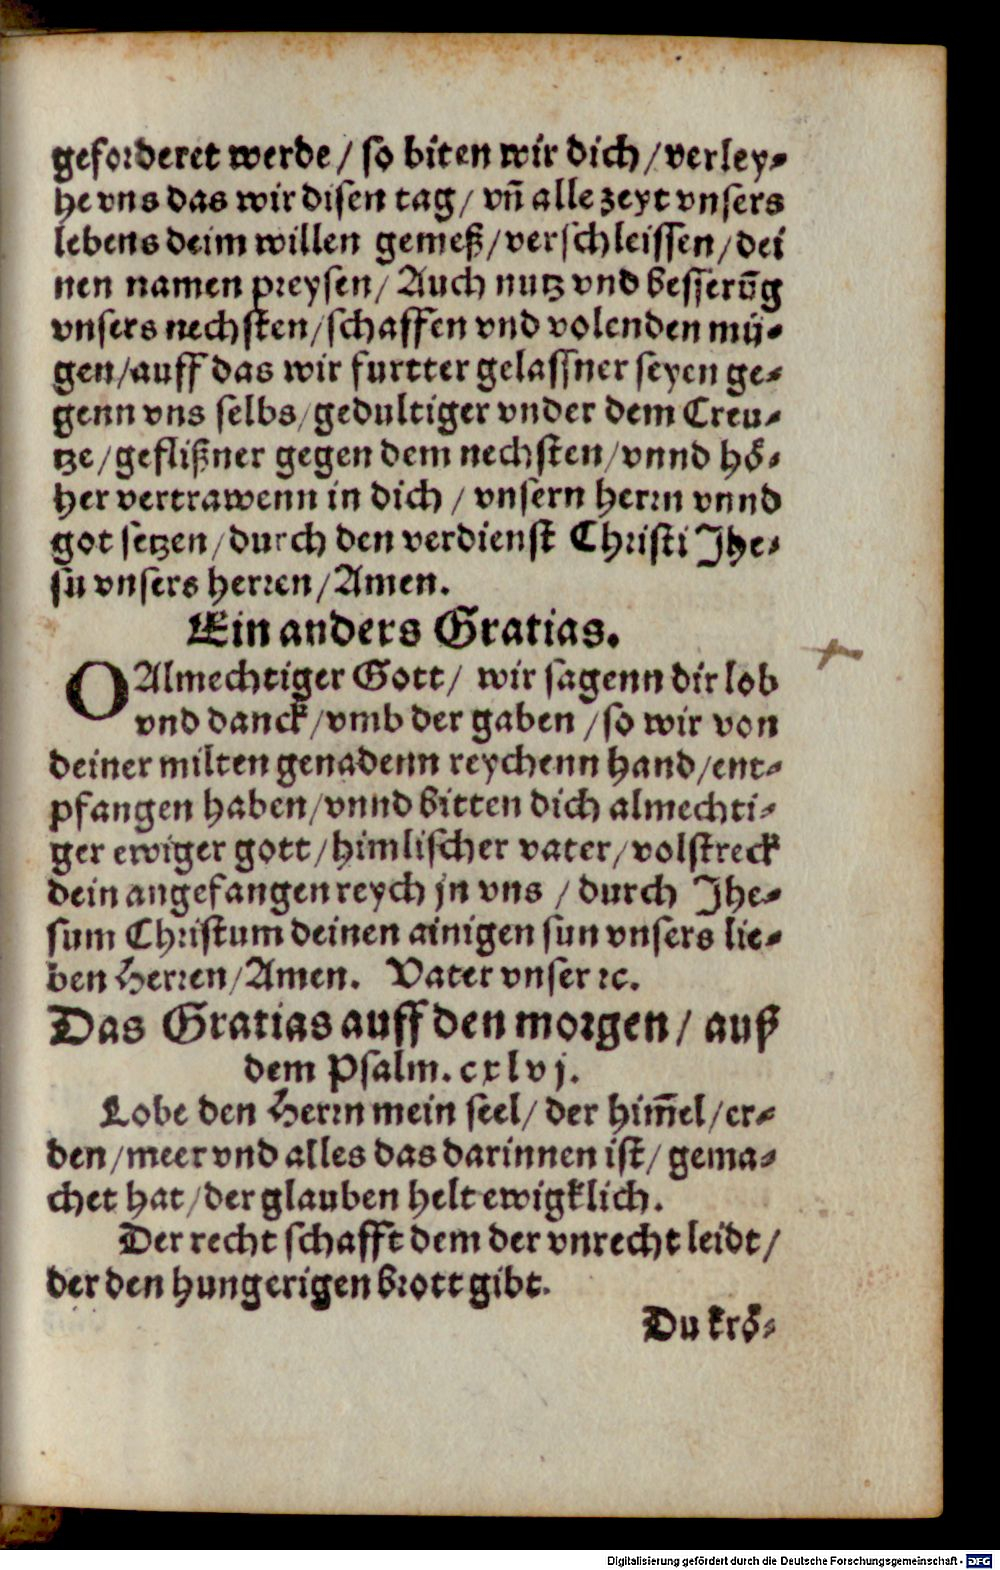 geforderet werde / so biten wir dich / verley-
he vns das wir disen tag / vñ alle zeyt vnsers
lebens deim willen gemeß / verschleissen / dei
nen namen preysen / Auch nutz vnd besserūg
vnsers nechsten / schaffen vnd volenden mü-
gen / auff das wir furtter gelassner seyen ge-
genn vns selbs / gedultiger vnder dem Creu-
tze / geflißner gegen dem nechsten / vnnd hö-
her vertrawenn in dich / vnsern herrn vnnd
got setzen / durch den verdienst Christi Jhe-
su vnsers herren / Amen.
Ein anders Gratias.
O Almechtiger Gott / wir sagenn dir lob
vnd danck / vmb der gaben / so wir von
deiner milten genadenn reychenn hand / ent-
pfangen haben / vnnd bitten dich almechti-
ger ewiger gott / himlischer vater / volstreck
dein angefangen reych jn vns / durch Jhe-
sum Christum deinen ainigen sun vnsers lie-
ben Herren / Amen. Vater vnser ⁊c.
Das Gratias auff den morgen / auß
dem Psalm. cxlvj.
Lobe den Herrn mein seel / der him̄el / er-
den / meer vnd alles das darinnen ist / gema-
chet hat / der glauben helt ewigklich.
Der recht schafft dem der vnrecht leidt /
der den hungerigen brott gibt.
Du krö-
Digitalisierung gefördert durch die Deutsche Forschungsgemeinschaft - DFG